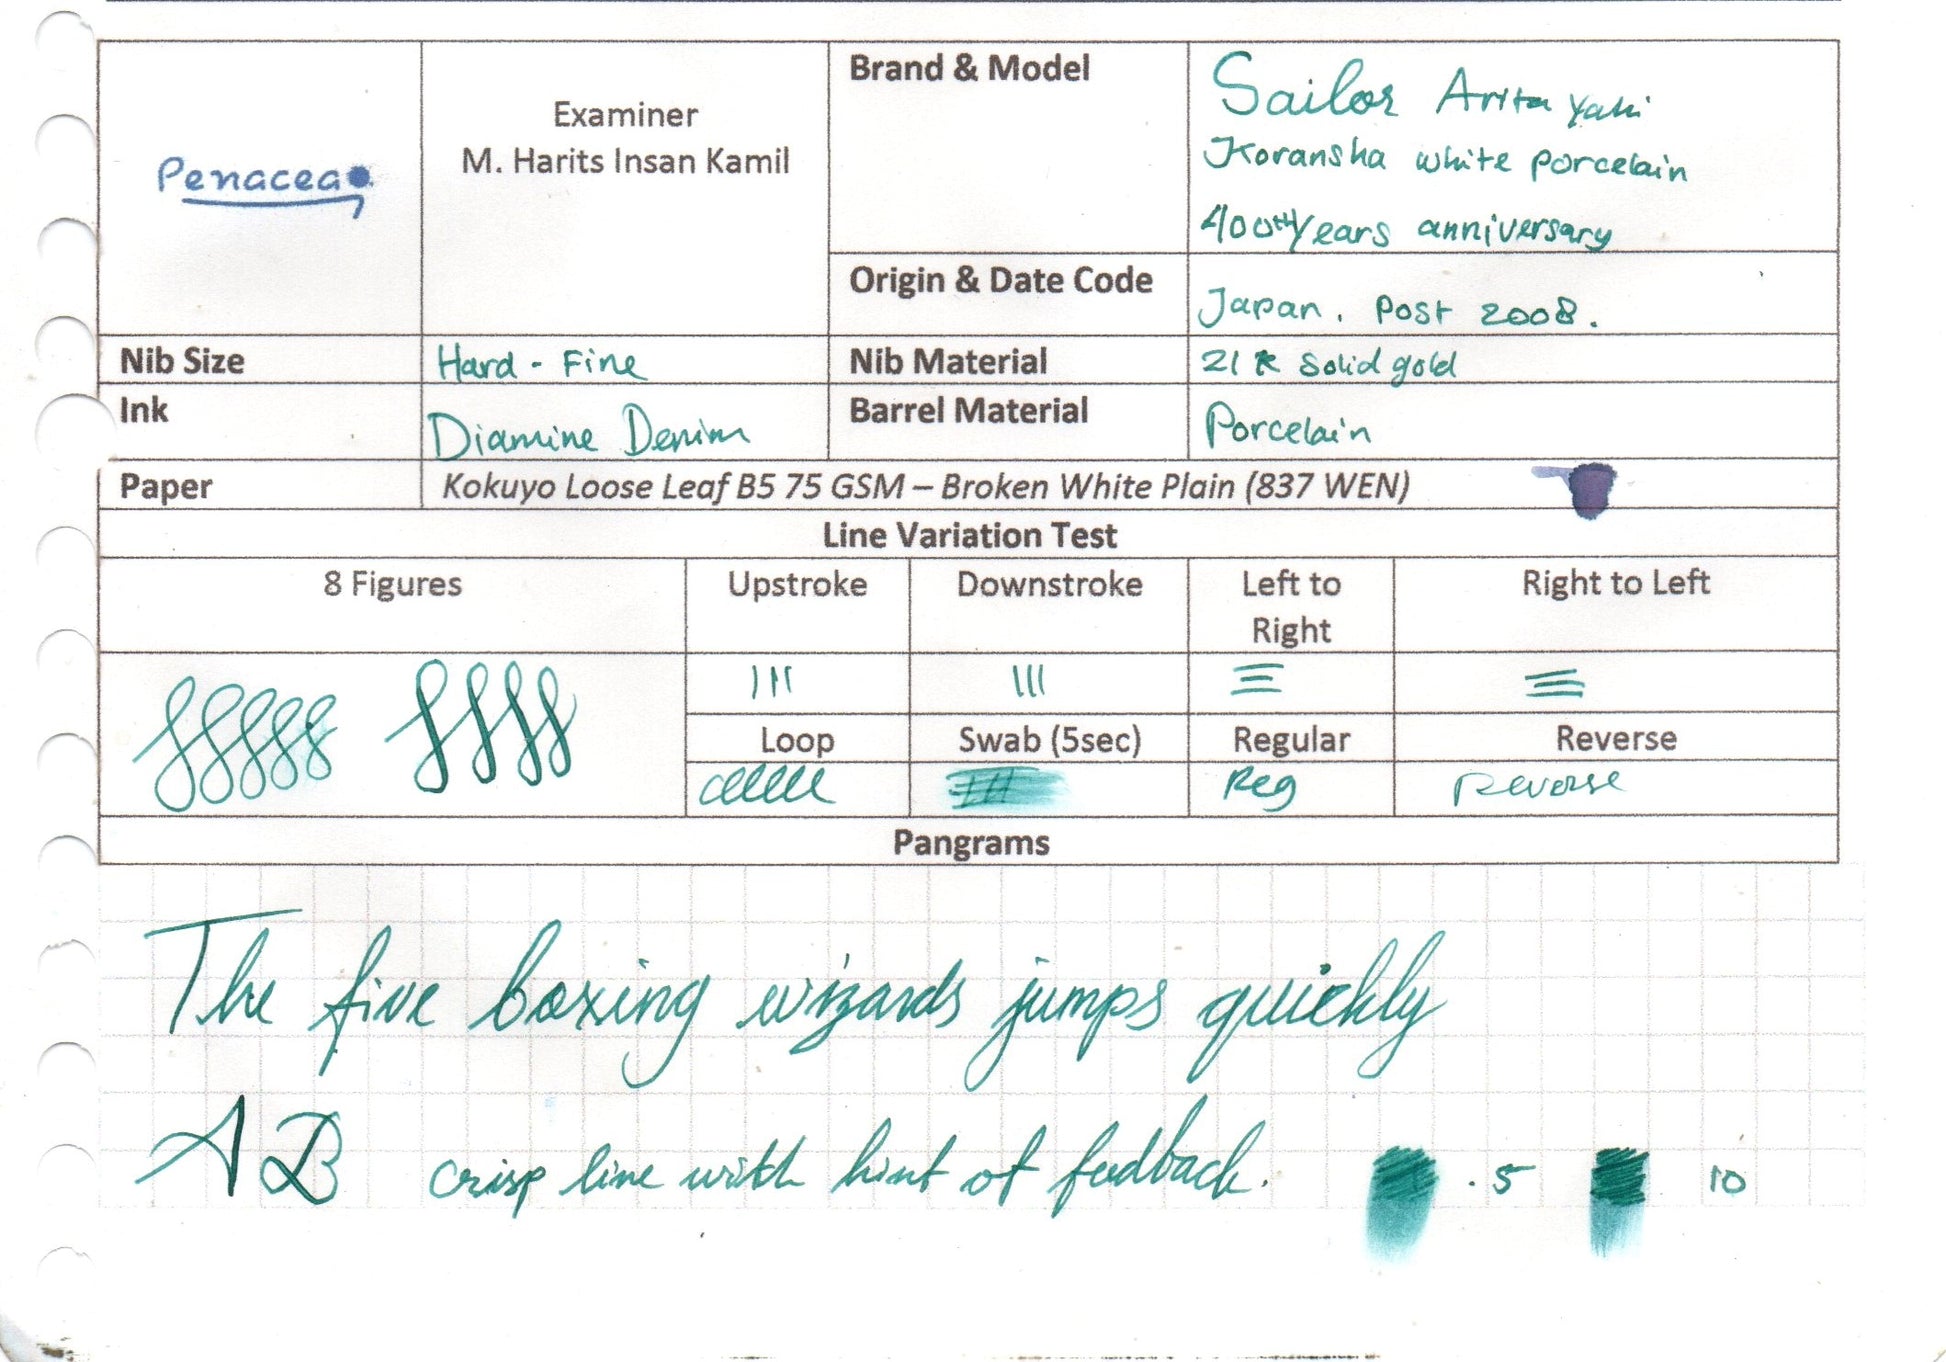 Penacea
Examiner
M. Harits Insan Kamil
Brand & Model
Sailor Arita Yaki
Koransha white porcelain
400th years anniversary
Origin & Date Code
Japan. Post 2008.
Nib Size
Hard - Fine
Nib Material
21 K Solid gold
Ink
Diamine Denim
Barrel Material
Porcelain
Paper
Kokuyo Loose Leaf B5 75 GSM – Broken White Plain (837 WEN)
Line Variation Test
8 Figures
Upstroke
Downstroke
Left to
Right
Right to Left
Loop
Swab (5sec)
Regular
Reverse
Reg
Reverse
Pangrams
The five boxing wizards jumps quickly
A B crisp line with hint of feedback. . 5 10